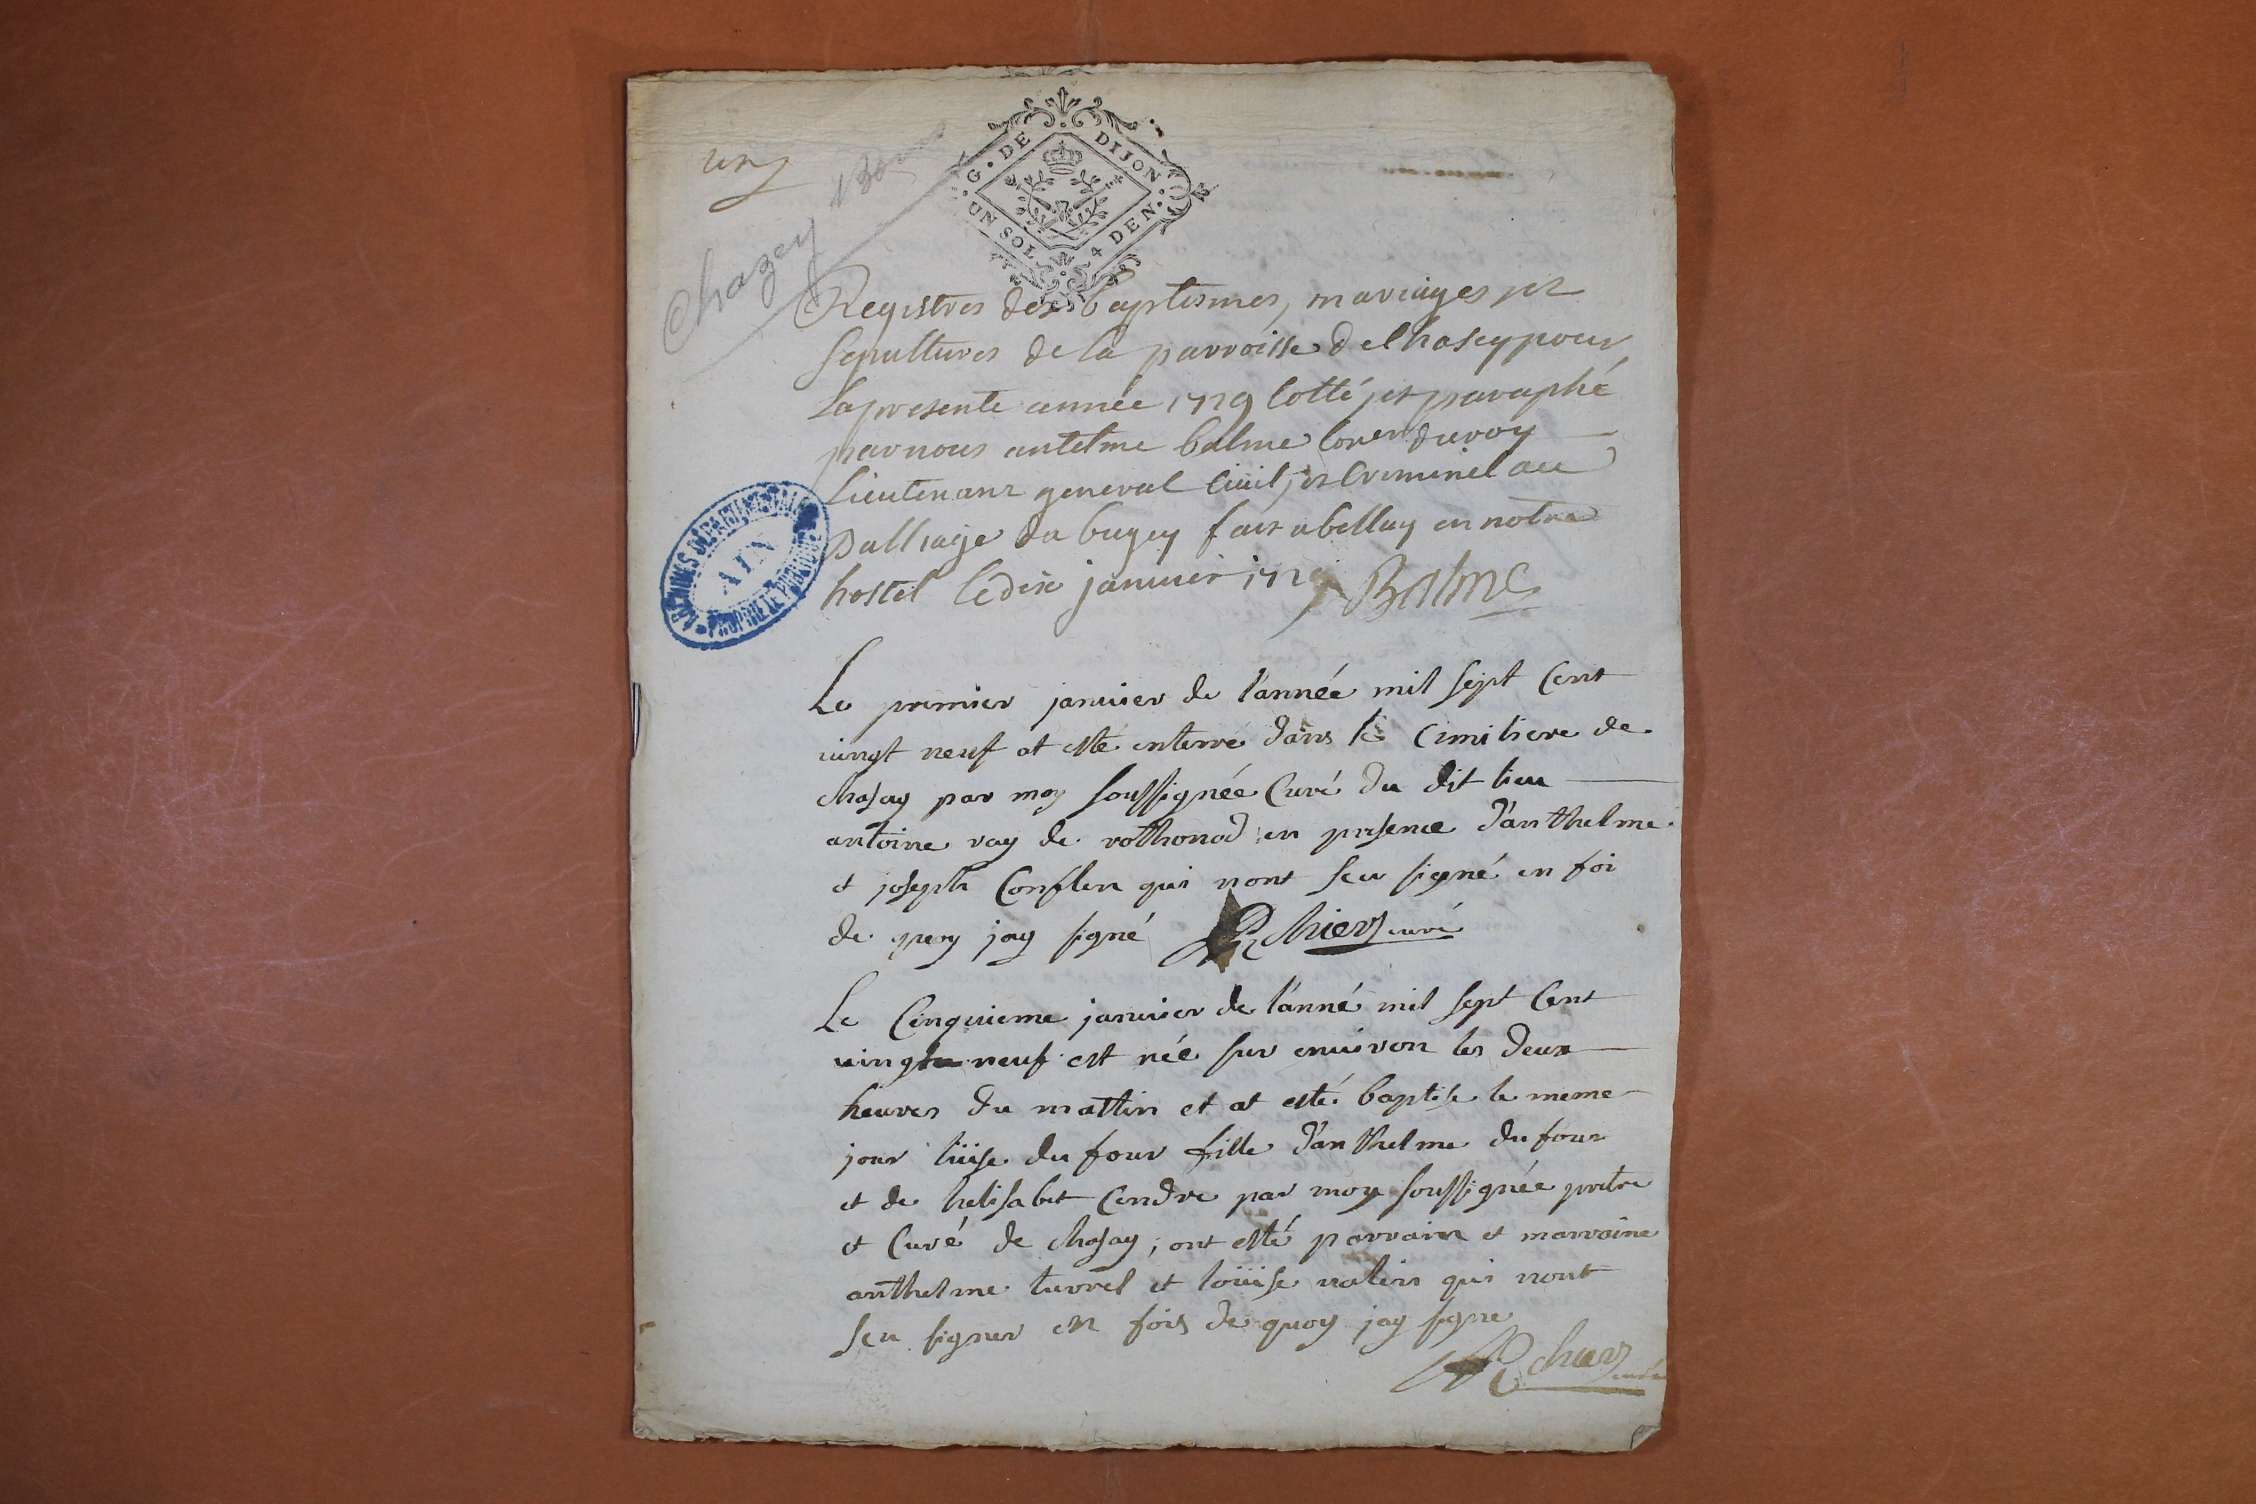 un
chazey Bons
G. DE DIJON
UN SOL 4 DEN.
Registres des baptismes, mariages et
sepultures de la parroisse de Chasey pour
la presente année 1729 cotté et paraphé
par nous antelme balme Coner du roy
Lieutenant general Civil et Criminel au
Balliage du bugey fait a bellay en notre
hostel le dix janvier 1729 Balme
ARCHIVES DÉPARTEMENTALES
AIN
PROPRIÉTÉ PUBLIQUE
Le premier janvier de l'année mil sept Cent
vingt neuf at esté enterré dans le Cimitiere de
chasay par moy souffignée Curé du dit lieu
antoine ray de rothonod en presence d'anthelme
et joseph Conflen qui nont sceu signé en foi
de quoy jay signé curé
Le Cinquieme janvier de l'anné mil sept Cent
vingt neuf est née sur environ les deux
heures du mattin et at esté baptise le meme
jour luise du four fille d'anthelme du four
et de helisabet Cendre par moy souffignée pretre
et Curé de chasay, ont esté parrain et marraine
anthelme turrel et louise valin qui nont
sceu signer en fois de quoy jay signe
curé